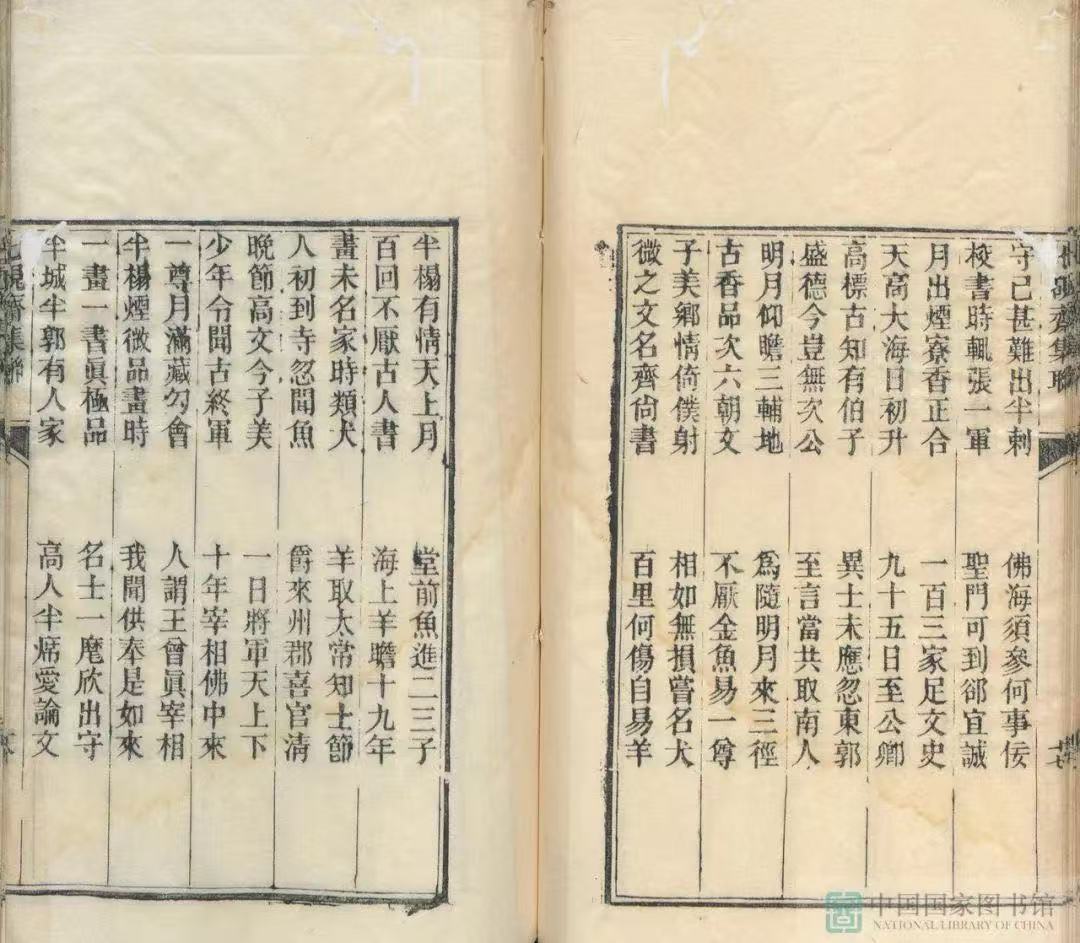 守己甚難出半刺
佛海須參何事佞
校書時輒張一軍
聖門可到卻宜誠
月出煙寮香正合
一百三家足文史
天高大海日初升
九十五日至公卿
高標古知有伯子
異士未應忽東郭
盛德今豈無次公
至言當共取南人
明月仰瞻三輔地
為隨明月來三徑
古香品次六朝文
不厭金魚易一尊
子美鄉情倚僕射
相如無損嘗名犬
微之文名齊尙書
百里何傷自易羊
半榻有情天上月
堂前魚進二三子
百回不厭古人書
海上羊瞻十九年
畫未名家時類犬
羊取太常知士節
人初到寺忽聞魚
爵來州郡喜官清
晚節高文今子美
一日將軍天上下
少年令聞古終軍
十年宰相佛中來
一尊月滿藏勾會
人謂王曾眞宰相
半榻煙微品畫時
我聞供奉是如來
一畫一書眞極品
名士一麾欣出守
半城半郭有人家
高人半席愛論文
齋集聯
十七
硯齋集聯
中国国家图书馆
NATIONAL LIBRARY OF CHINA